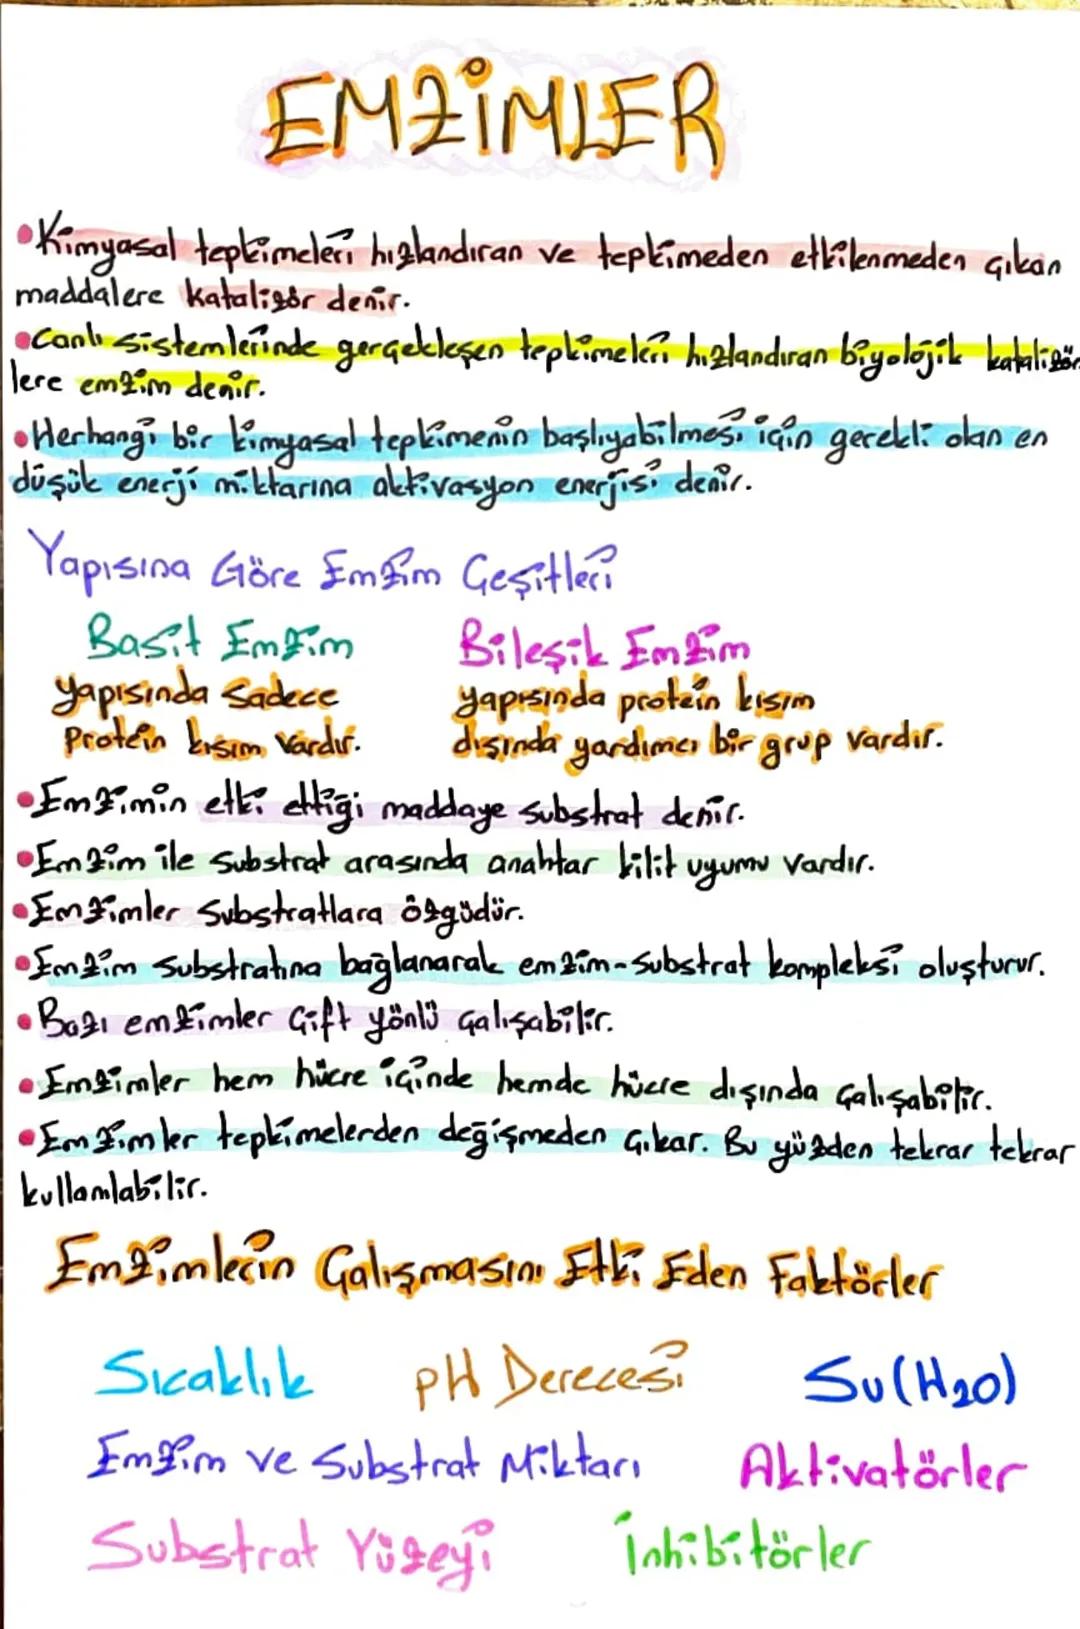 EMZİMLER
•Kimyasal tepkimeleri hızlandıran ve tepkimeden etkilenmeden çıkan
maddalere katalizör denir.
•Canlı sistemlerinde gerçekleşen tepkimeleri hızlandıran biyolojik katalizör-
lere emzim denir.
•Herhangi bir kimyasal tepkimenin başlıyabilmesi için gerekli olan en
düşük enerji miktarına aktivasyon enerjisi denir.
Yapısına Göre Emzim Çeşitleri
Basit Emzim Bileşik Emzim
yapısında sadece yapısında protein kısım
protein kısım vardır. dışında yardımcı bir grup vardır.
•Emzimin etki ettiği maddaye substrat denir.
•Emzim ile substrat arasında anahtar kilit uyumu vardır.
•Emzimler substratlara özgüdür.
•Emzim substratına bağlanarak emzim-substrat kompleksi oluşturur.
•Bazı emzimler çift yönlü çalışabilir.
•Emzimler hem hücre içinde hemde hücre dışında çalışabilir.
•Emzimler tepkimelerden değişmeden çıkar. Bu yüzden tekrar tekrar
kullamlabilir.
Emzimlerin Çalışmasını Etki Eden Faktörler
Sıcaklık pH Derecesi Su(H2O)
Emzim ve Substrat Miktarı Aktivatörler
Substrat Yüzeyi İnhibitörler